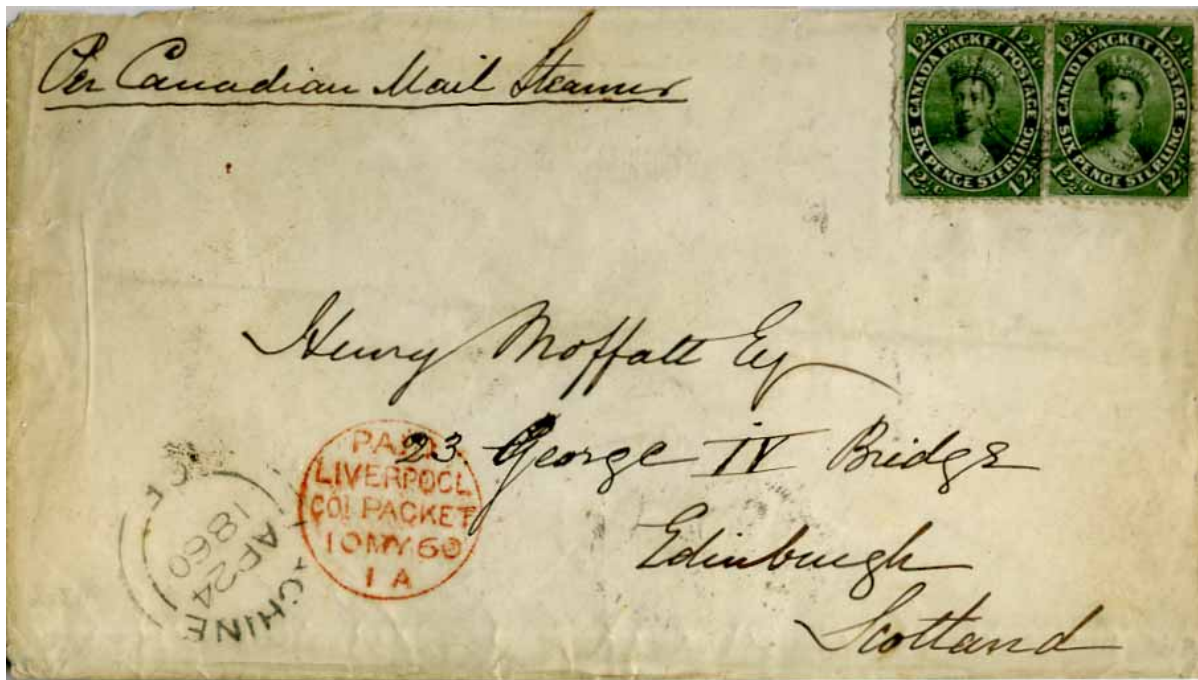 Per Canadian Mail Steamer
12½c 12½c
CANADA PACKET POSTAGE
SIX PENCE STERLING
12½c 12½c
12½c 12½c
CANADA PACKET POSTAGE
SIX PENCE STERLING
12½c 12½c
Henry Moffatt Esq
23 George IV Bridge
Edinburgh
Scotland
PAID
LIVERPOOL
COL PACKET
10 MY 60
1 A
CHINE
AP 24
1860